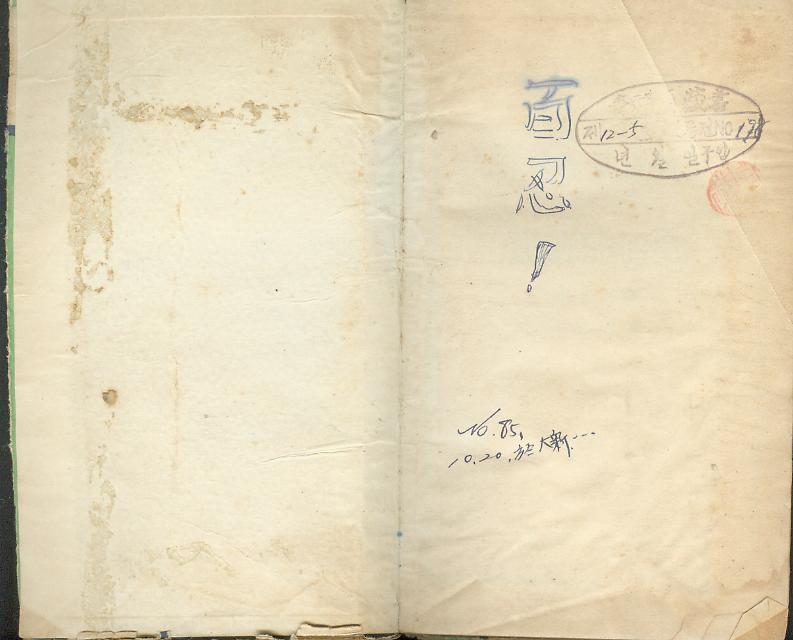 百
忍
!
藏書
제12-5 No
년 월 일 구입
No. 85,
10.20. 於大新